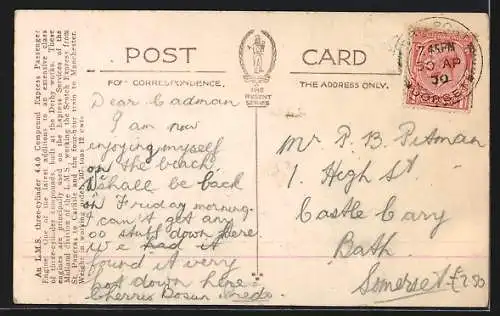 An L.M.S. three-cylinder 4.4.0 Compound Express Passenger
Engine; one of the latest additions to an extensive class
of three-cylinder compounds, built at the Derby works. These
engines are principally used on the Express Services of the
Midland division of the L.M.S. working the Scotch Express from
St. Pancras to Carlisle and the four-hour train to Manchester.
Weight in working order, 107 tons 12 cwts
POST
CARD
FOR CORRESPONDENCE.
THE REGENT SERIES
THE ADDRESS ONLY.
7.45PM
30 AP
30
DORSET
Dear Cadman
I am now
enjoying myself
on the beach
shall be back
on Friday morning.
I can't get any
oo stuff down here
we had it
found it very
hot down here
cherrio Bosun
Mr P. B. Pitman
1. High St
Castle Cary
Bath
Somerset
£2.50